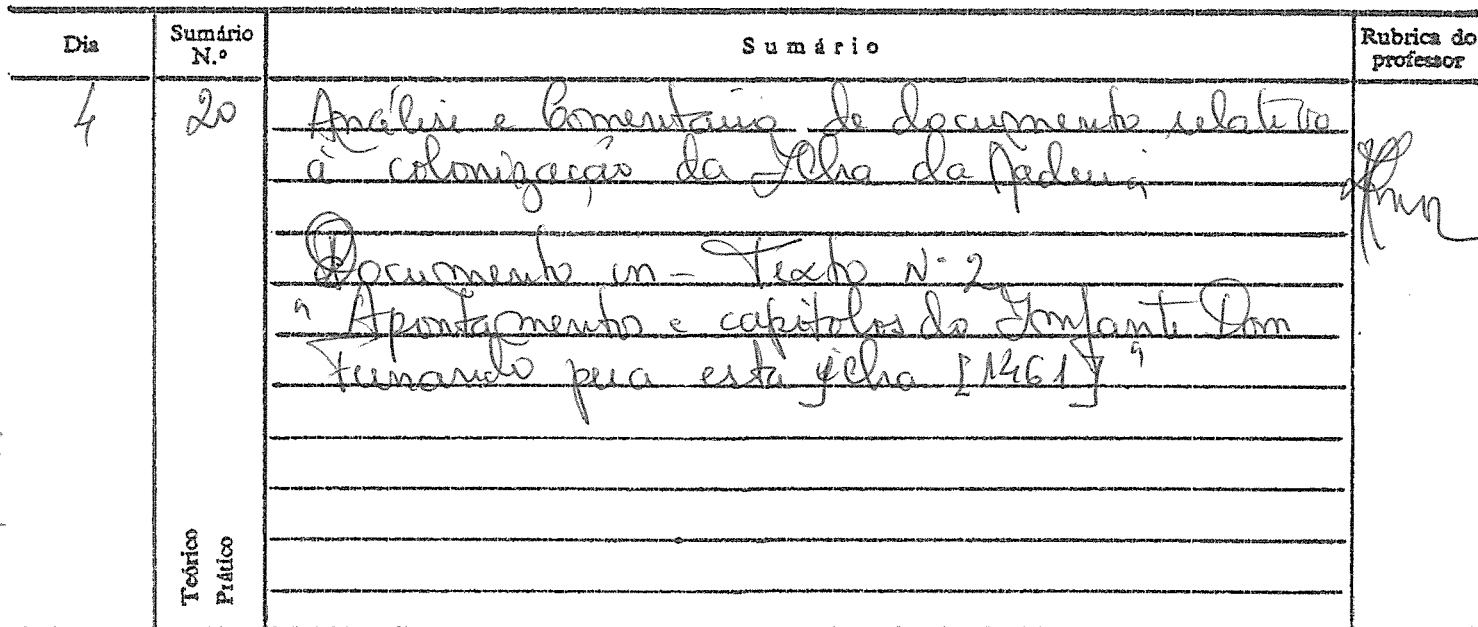 Dia Sumário N.º Sumário Rubrica do professor
4 20 Análise e Comentário de documento relativo
à colonização da Ilha da Madeira
Documento in - Texto Nº 2
"Apontamento e capitolos do Iomfante Dom
Fernando pera esta ylha [1461]"
Teórico
Prático